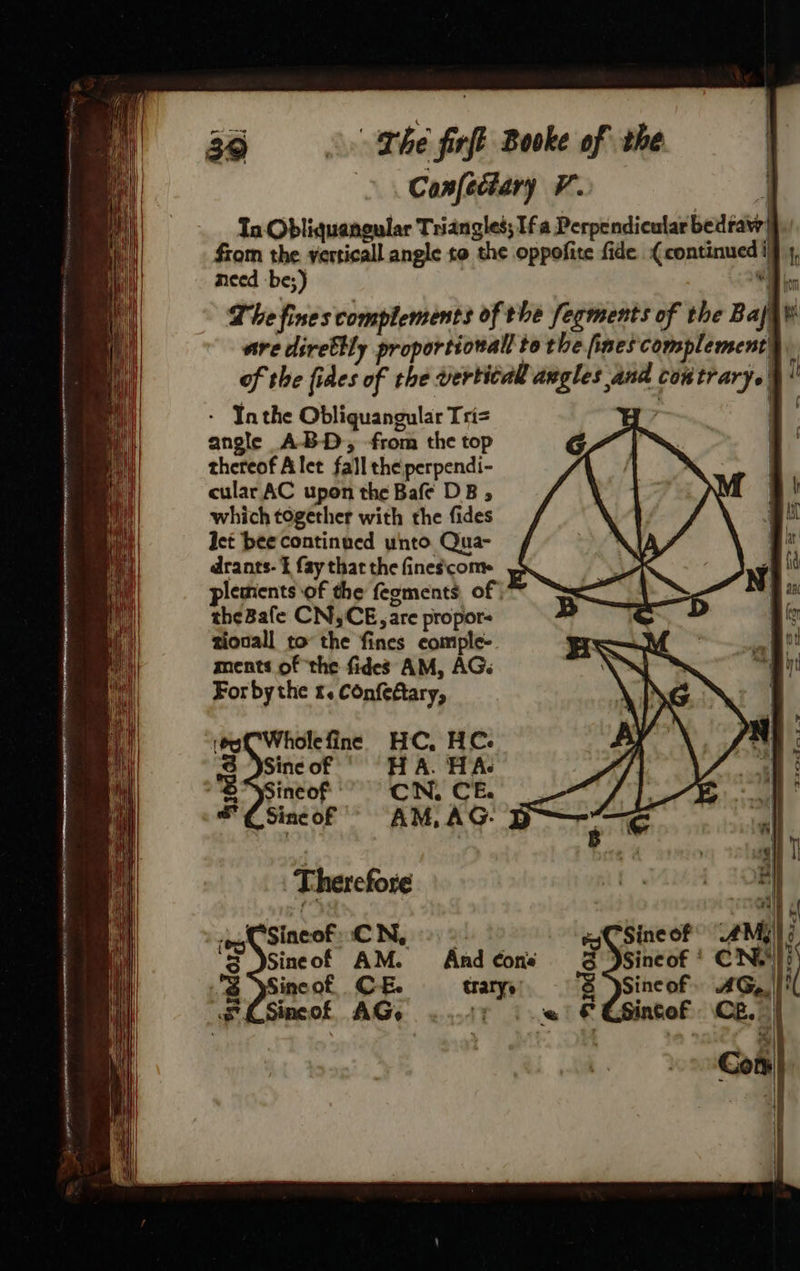 30 The first Booke of the
Consectary V.
In Obliquangular Triangles; If a Perpendicular be drawn
from the verticall angle to the opposite side (continued if
need be;)
The sines complements of the segments of the Base
are directly proportionall to the sines complement
of the sides of the verticall angles and contrary.
In the Obliquangular Tri=
angle ABD, from the top
thereof A let fall the perpendi-
cular AC upon the Base DB,
which together with the sides
let bee continued unto Qua-
drants. I say that the sines com-
plements of the segments of
the Base CN, CE, are propor-
tionall to the sines comple-
ments of the sides AM, AG.
For by the 1. Consectary,
H
G
M
A
E
N
B
C
D
H
M
G
A
N
E
D
B
C
Whole sine HC. HC.
Sine of HA. HA.
Sine of CN. CE.
Sine of AM, AG.
Therefore
Sine of CN,
Sine of AM.
Sine of CE.
Sine of AG.
And con-
trary.
Sine of AM,
Sine of CN.
Sine of AG,
Sine of CE.
Con